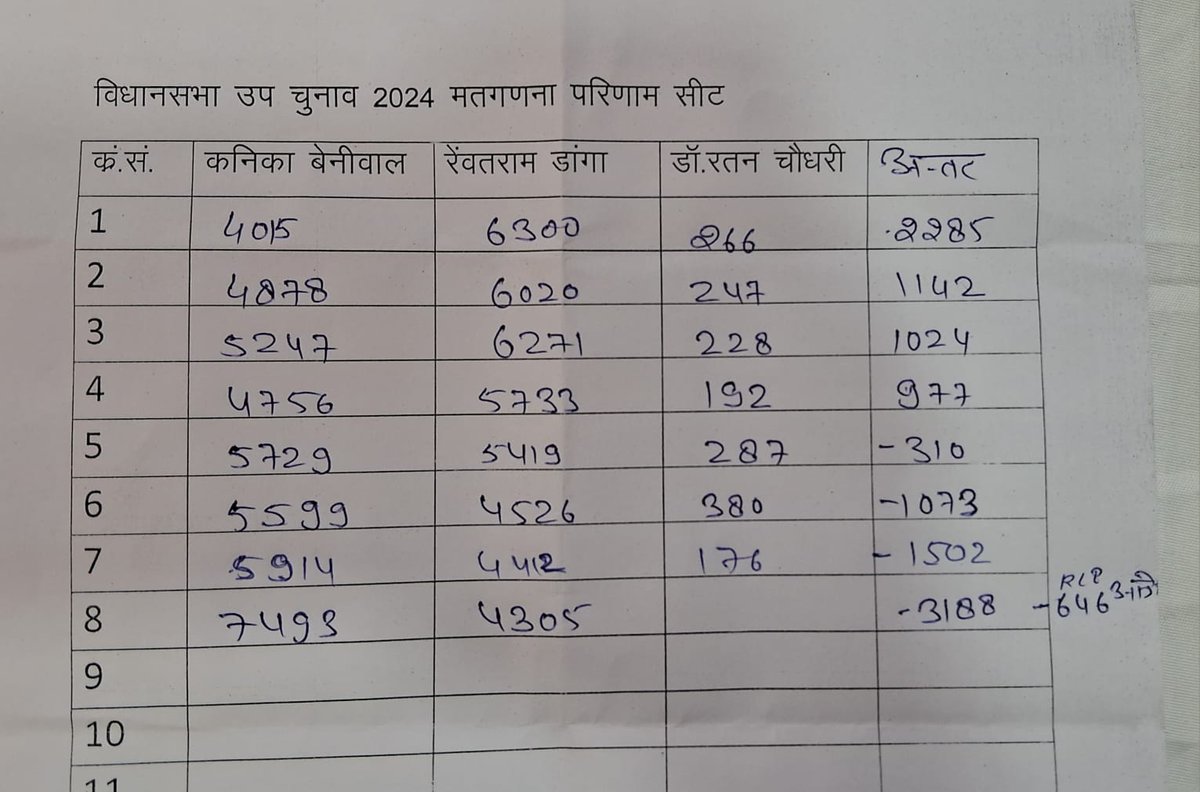 विधानसभा उप चुनाव 2024 मतगणना परिणाम सीट
क्रं.सं. कनिका बेनीवाल रेंवतराम डांगा डॉ.रतन चौधरी अन्तर
1 4015 6300 266 2285
2 4878 6020 247 1142
3 5247 6271 228 1024
4 4756 5733 192 977
5 5729 5419 287 -310
6 5599 4526 380 -1073
7 5914 4412 176 -1502
8 7493 4305 -3188 -646 RLP आगे
9
10
11